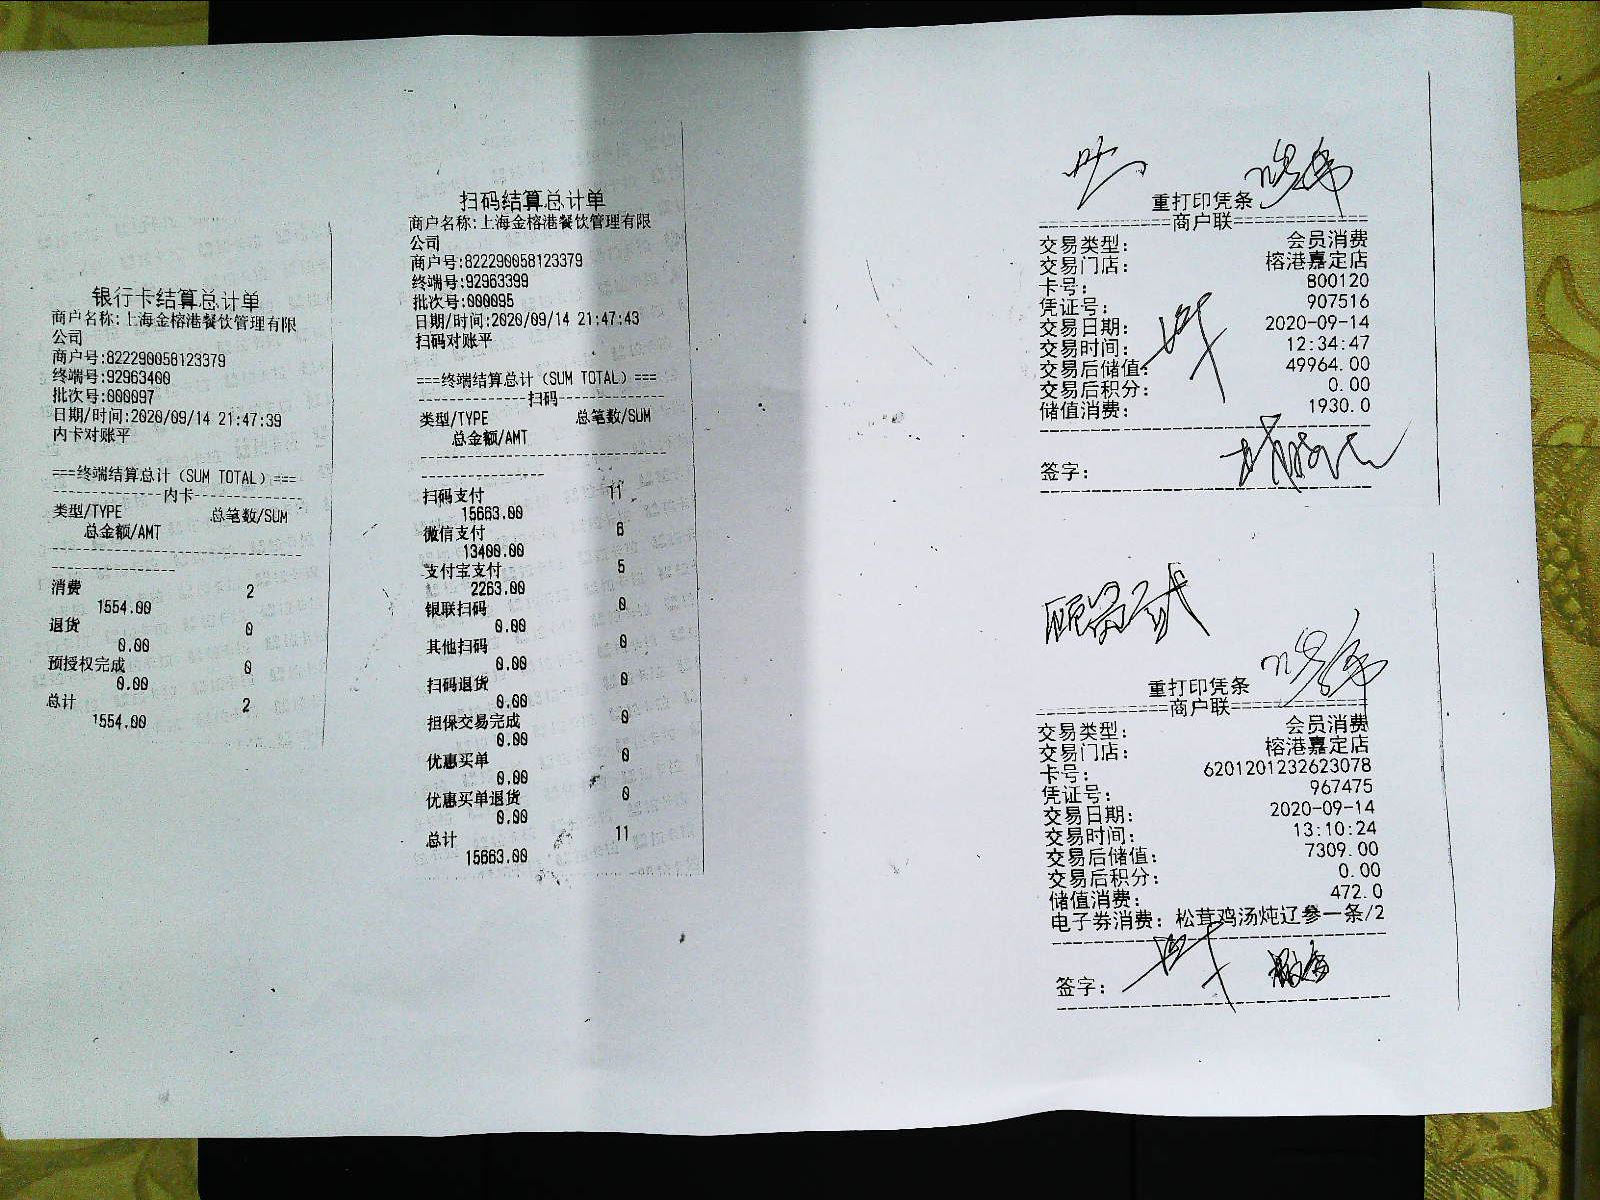 银行卡结算总计单
商户名称:上海金榕港餐饮管理有限
公司
商户号:822290058123379
终端号:92963400
批次号:000097
日期/时间:2020/09/14 21:47:39
内卡对账平
===终端结算总计（SUM TOTAL）===
----------------内卡----------------
类型/TYPE 总笔数/SUM
总金额/AMT
消费 2
1554.00
退货 0
0.00
预授权完成 0
0.00
总计 2
1554.00
扫码结算总计单
商户名称:上海金榕港餐饮管理有限
公司
商户号:822290058123379
终端号:92963399
批次号:000095
日期/时间:2020/09/14 21:47:43
扫码对账平
===终端结算总计（SUM TOTAL）===
----------------扫码----------------
类型/TYPE 总笔数/SUM
总金额/AMT
扫码支付 11
15663.00
微信支付 6
13400.00
支付宝支付 5
2263.00
银联扫码 0
0.00
其他扫码 0
0.00
扫码退货 0
0.00
担保交易完成 0
0.00
优惠买单 0
0.00
优惠买单退货 0
0.00
总计 11
15663.00
重打印凭条
=============商户联=============
交易类型: 会员消费
交易门店: 榕港嘉定店
卡号: 800120
凭证号: 907516
交易日期: 2020-09-14
交易时间: 12:34:47
交易后储值: 49964.00
交易后积分: 0.00
储值消费: 1930.0
签字:
重打印凭条
=============商户联=============
交易类型: 会员消费
交易门店: 榕港嘉定店
卡号: 6201201232623078
凭证号: 967475
交易日期: 2020-09-14
交易时间: 13:10:24
交易后储值: 7309.00
交易后积分: 0.00
储值消费: 472.0
电子券消费: 松茸鸡汤炖辽參一条/2
签字: